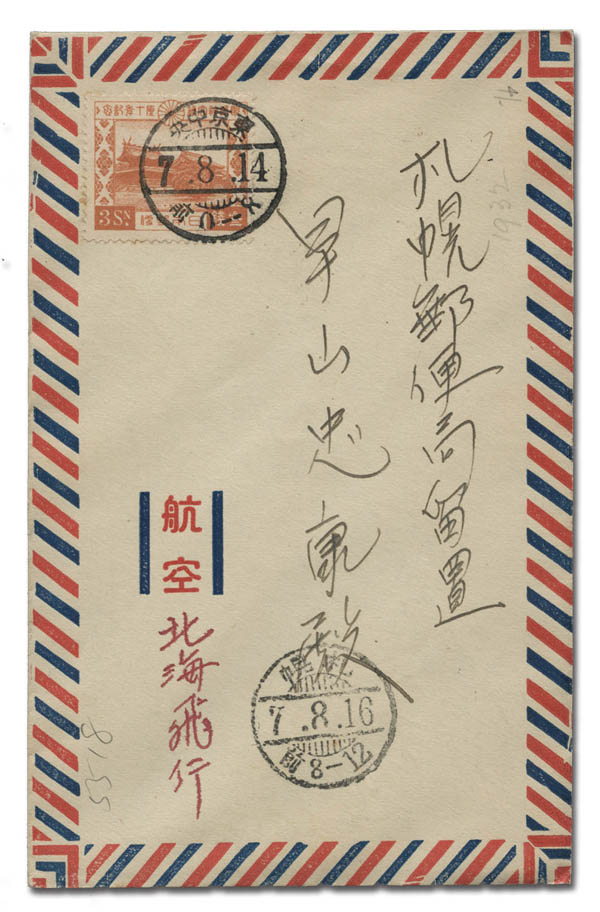 札幌郵便局留置
早山忠康殿
航空
北海飛行
3 Sn
東京中央
7.8.14
札幌
7.8.16
前8-12
1932